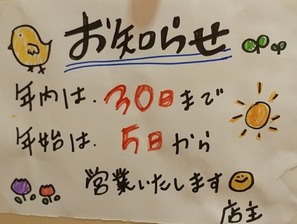 お知らせ
年内は.30日まで
年始は.5日から
営業いたします
店主